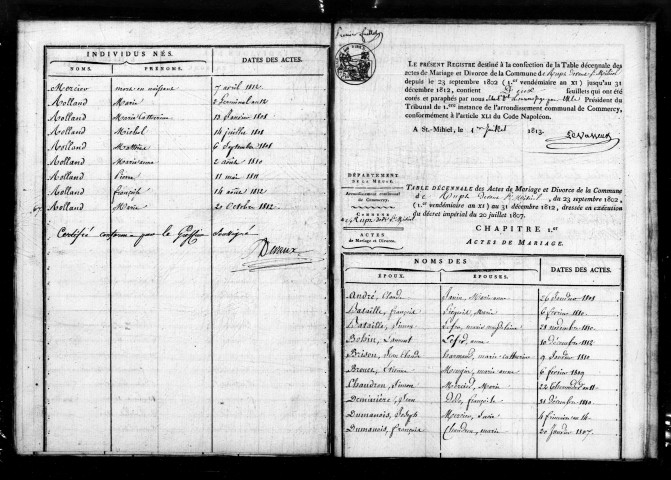 INDIVIDUS NÉS. DATES DES ACTES.
NOMS. PRÉNOMS.
Mercier mort en naissant 7 avril 1812
Rolland Marie 2 Germinal an 12
Rolland Marie Catherine 13 Janvier 1808
Rolland Michel 14 juillet 1808
Rolland 6 Septembre 1808
Rolland Marie anne 2 août 1810
Rolland Pierre 11 mai 1811
Rolland françois 14 août 1812
Rolland Marie 20 Octobre 1812
Certifié conforme par le Greffier Soussigné
Premier feuillet
LE PRÉSENT REGISTRE destiné à la confection de la Table décennale des
actes de Mariage et Divorce de la Commune de Rupt devant St. Mihiel
depuis le 23 septembre 1802 (1.er vendémiaire an XI) jusqu'au 31
décembre 1812, contient Deux feuillets qui ont été
cotés et paraphés par nous Président du
Tribunal de 1.ere instance de l'arrondissement communal de Commercy,
conformément à l'article XLI du Code Napoléon.
A St.-Mihiel, le 1er Juillet 1813.
Levasseur
DÉPARTEMENT
DE LA MEUSE.
Arrondissement communal
de Commercy.
COMMUNE
de Rupt devt. St. Mihiel
ACTES
de Mariage et Divorce.
TABLE DÉCENNALE des Actes de Mariage et Divorce de la Commune
de Rupt devant St. Mihiel, du 23 septembre 1802,
(1.er vendémiaire an XI) au 31 décembre 1812, dressée en exécution
du décret impérial du 20 juillet 1807.
CHAPITRE 1.er
ACTES DE MARIAGE.
NOMS DES DATES DES ACTES.
ÉPOUX. ÉPOUSES.
André, Claude Janin, Marie anne 26 Janvier 1808
Bataille, françois Marie 6 février 1810.
Bataille, Marie magdeleine 28 novembre 1810.
Bobin, Laurent anne 10 décembre 1812
Brison, Jean Claude harmand, marie catherine 9 Janvier 1810
Brouet, Etienne Mengin, marie anne 6 février 1809
Chaudron, Simon Mercier, Marie
Deminière, Jean françoise 31 décembre 1810.
Dumanois, Joseph
Dumanois, François Chaudron, marie 20 Janvier 1807.